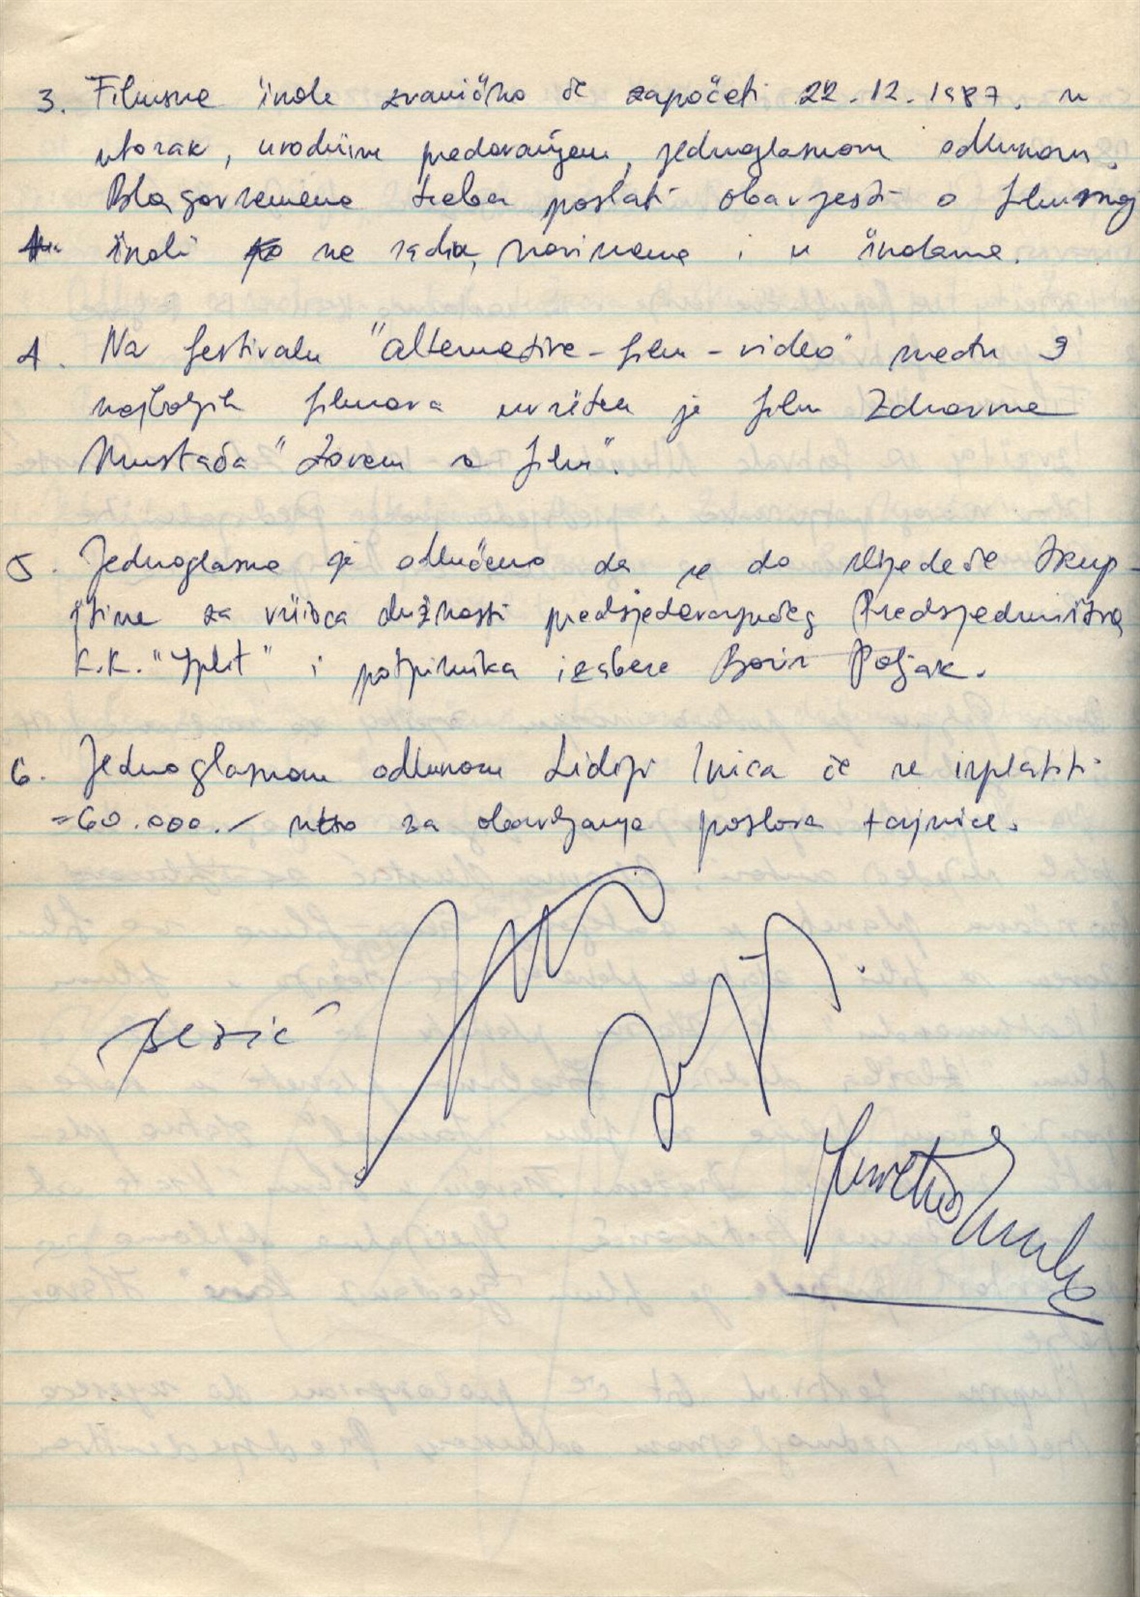 3. Filmska škola zvanično će započeti 22.12.1987. u
utorak, uvodnim predavanjem, jednoglasnom odlukom.
Blagovremeno treba poslati obavjesti o filmskoj
školi na radio, novinama i u školama.
4. Na festivalu "Alternative-film-video" među 9
najboljih filmova uvršten je film Zdravka
Mustaća "Zovem se film".
5. Jednoglasno je odlučeno da se do slijedeće Skup-
štine za vršioca dužnosti predsjedavajućeg Predsjedništva
K.K. "Split" i potpisnika izabere Boris Poljak.
6. Jednoglasnom odlukom Lidiji Ivica će se isplatiti
=60.000.- za obavljanje poslova tajnice.